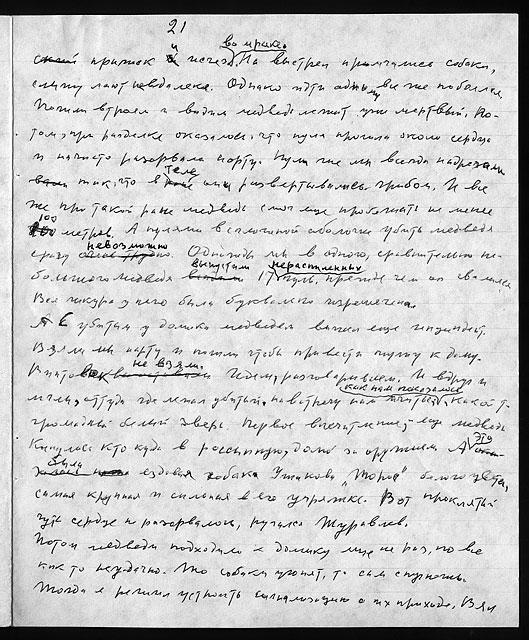 21
прыжок и исчез во мраке. На выстрел примчались собаки,
слышу лают невдалеке. Однако идти одному все же побоялся.
Пошли втроем и видим медведь лежит уже мертвый. По-
том, при разделке оказалось, что пуля прошла около сердца
и начисто разорвала аорту. Пули же мы всегда надрезали
так, что в теле они развертывались грибом. И все
же при такой ране медведь смог еще пробежать не менее
100 метров. А пулями в сплошной оболочке убить медведя
сразу невозможно. Однажды мы в одного, сравнительно не-
большого медведя выпустили 17 нераспиленных пуль, прежде чем он свалился.
Вся шкура у него была буквально изрешечена.
А с убитым у домика медведем вышел еще инцидент.
Взяли мы нарту и пошли чтобы привезти тушу к дому.
Винтовок не взяли. Идем, разговариваем. И вдруг
оттуда где лежал убитый, навстречу нам мчится, как нам показалось, какой-то
громадный белый зверь. Первое впечатление, – еще медведь
Кинулись кто куда в рассыпную, домой за оружием. А это
была ездовая собака Ушакова "Мороз" белого цвета,
самая крупная и сильная в его упряжке. Вот проклятый
чуть сердце не разорвалось, ругался Журавлев.
Потом медведи подходили к домику еще не раз, но все
как то неудачно. То собаки угонят, то сам спугнешь.
Тогда я решил устроить сигнализацию о их приходе. Взял